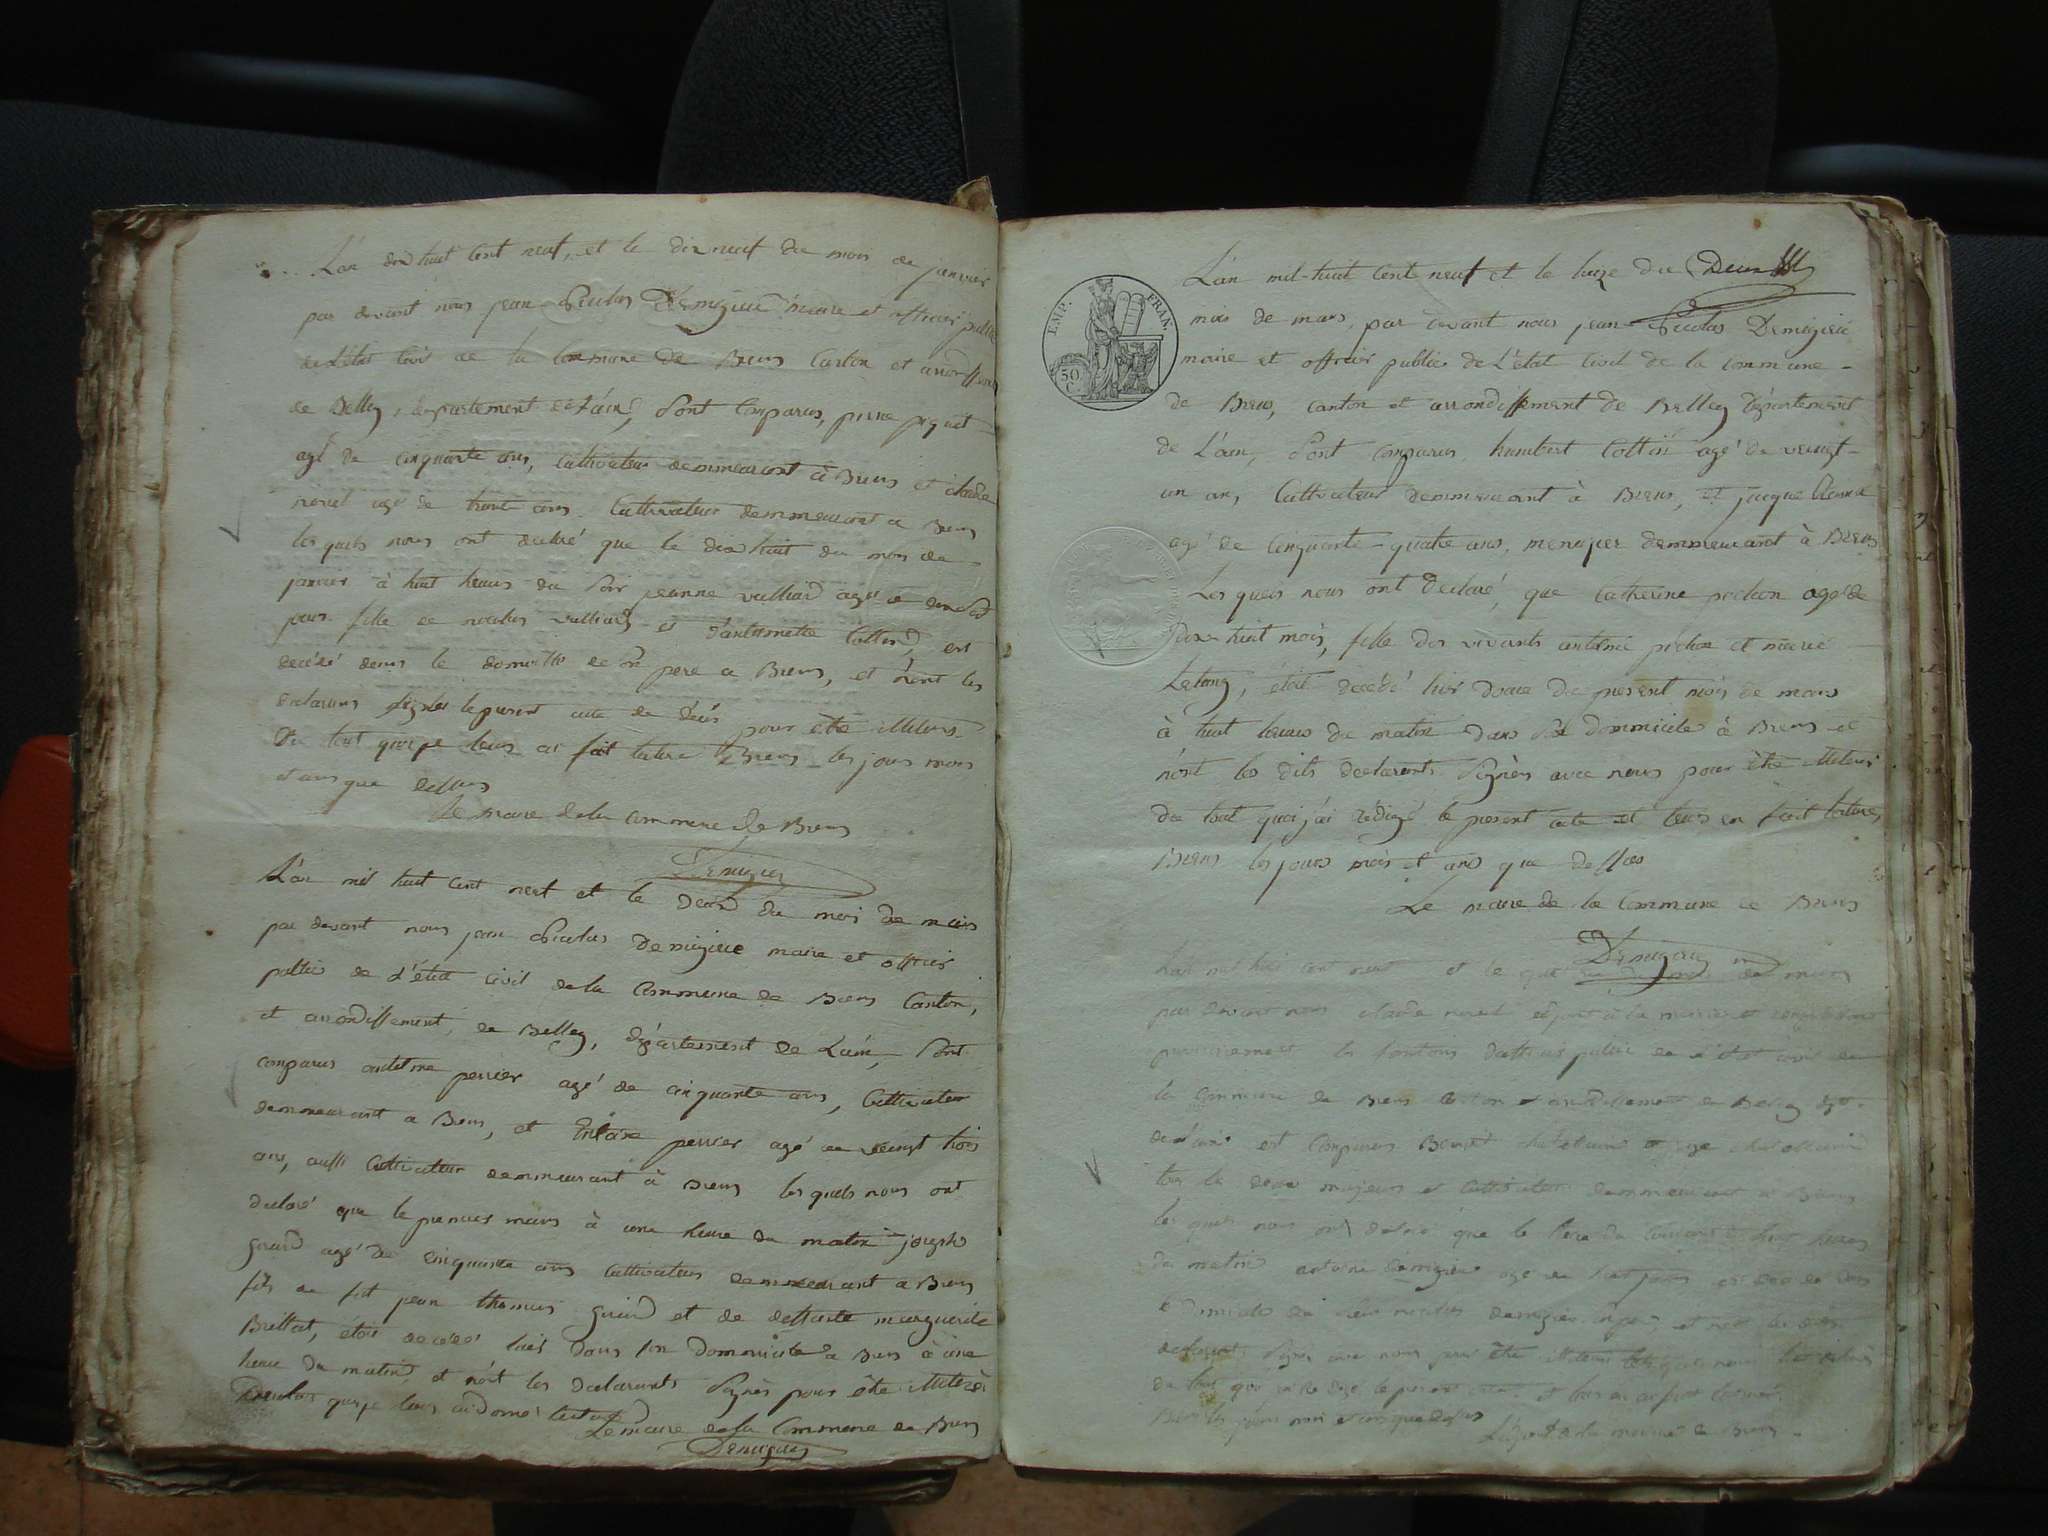 L'an dix huit cent neuf, et le dix neuf du mois de janvier
par devant nous jean Nicolas Demigieu maire et officier public
de L'état civil de la Commune de Brens Canton et arrondissem
de Belley, département de L'ain, sont comparus, pierre piquet
agé de cinquante ans, Cultivateur demmeurant à Brens et claude
agé de trente ans Cultivateur demmeurant a Brens
les quels nous ont declaré que le dix huit du mois de
janvier à huit heures du soir jeanne vulliard agé de
jours fille de nicolas vulliard et d'antoinette Cottin, est
decédé dans le domicille de son pere a Brens, et n'ont les
declarans signés le present acte de décés pour etre illiterés
Du tout quoi je leurs ai fait lecture Brens les jours mois
et ans que dessus
Le maire de la commune de Brens
Demigieu
L'an mil huit cent neuf et le deux du mois de mars
par devant nous jean Nicolas Demigieu maire et officier
public de L'état civil de la Commune de Brens Canton,
et arrondissement, de Belley, département de L'ain, sont
comparus anthelme perrier agé de cinquante ans, Cultivateur
demmeurant a Brens, et perrier agé de vingt trois
ans, aussi Cultivateur demmeurant à Brens les quels nous ont
declaré que le premier mars à une heure du matin joseph
Girard agé de cinquante ans Cultivateur demmeurant a Brens
fils de fut jean thomas Girard et de deffunte marguerite
Brillat, étoit decédé hier dans son dommicile a Brens à une
heure du matin, et n'ont les declarants signés pour être illiterés
quoi je leurs ai donné lecture
Le maire de la Commune de Brens
Demigieu
EMP. FRAN.
50 C.
L'an mil-huit cent neuf et le treize du
mois de mars, par devant nous jean Nicolas Demigieu
maire et officier public de L'état Civil de la commune
de Brens, canton et arrondissement de Belley département
de L'ain, sont comparus, humbert Cottin agé de vingt-
un ans, Cultivateur demmeurant à Brens, et jacque
agé de cinquante-quatre ans, menager demmeurant à Brens
Les quels nous ont declaré, que Catherine pichon agé de
dix-huit mois, fille des vivants antoine pichon et marie
Letong, étoit decédé hier douze du present mois de mars
à huit heures du matin dans son dommicile à Brens et
n'ont les dits declarants signés avec nous pour être illiterés
du tout quoi j'ai rédigé le present acte et leurs en fait lecture,
Brens les jours mois et ans que dessus
Le maire de la Commune de Brens
Demigieu
L'an mil huit cent neuf et le du mois de mars
par devant nous claude adjoint à la mairie et remplissant
provisoirement les fonctions d'officier public de l'état civil de
la Commune de Brens Canton et arrondissement de Belley
de L'ain est comparus Benoit
tous les deux majeurs et Cultivateurs demmeurant a Brens
les quels nous ont declaré que le du courant à huit heures
du matin antoine demigieu agé de jours est decédé dans
le domicile de nicolas demigieu et n'ont les dits
declarants signés avec nous pour être illiterés
du tout quoi j'ai redigé le present acte et leurs en ai fait lecture
Brens les jours mois et ans que dessus
L'adjoint de la mairie de Brens